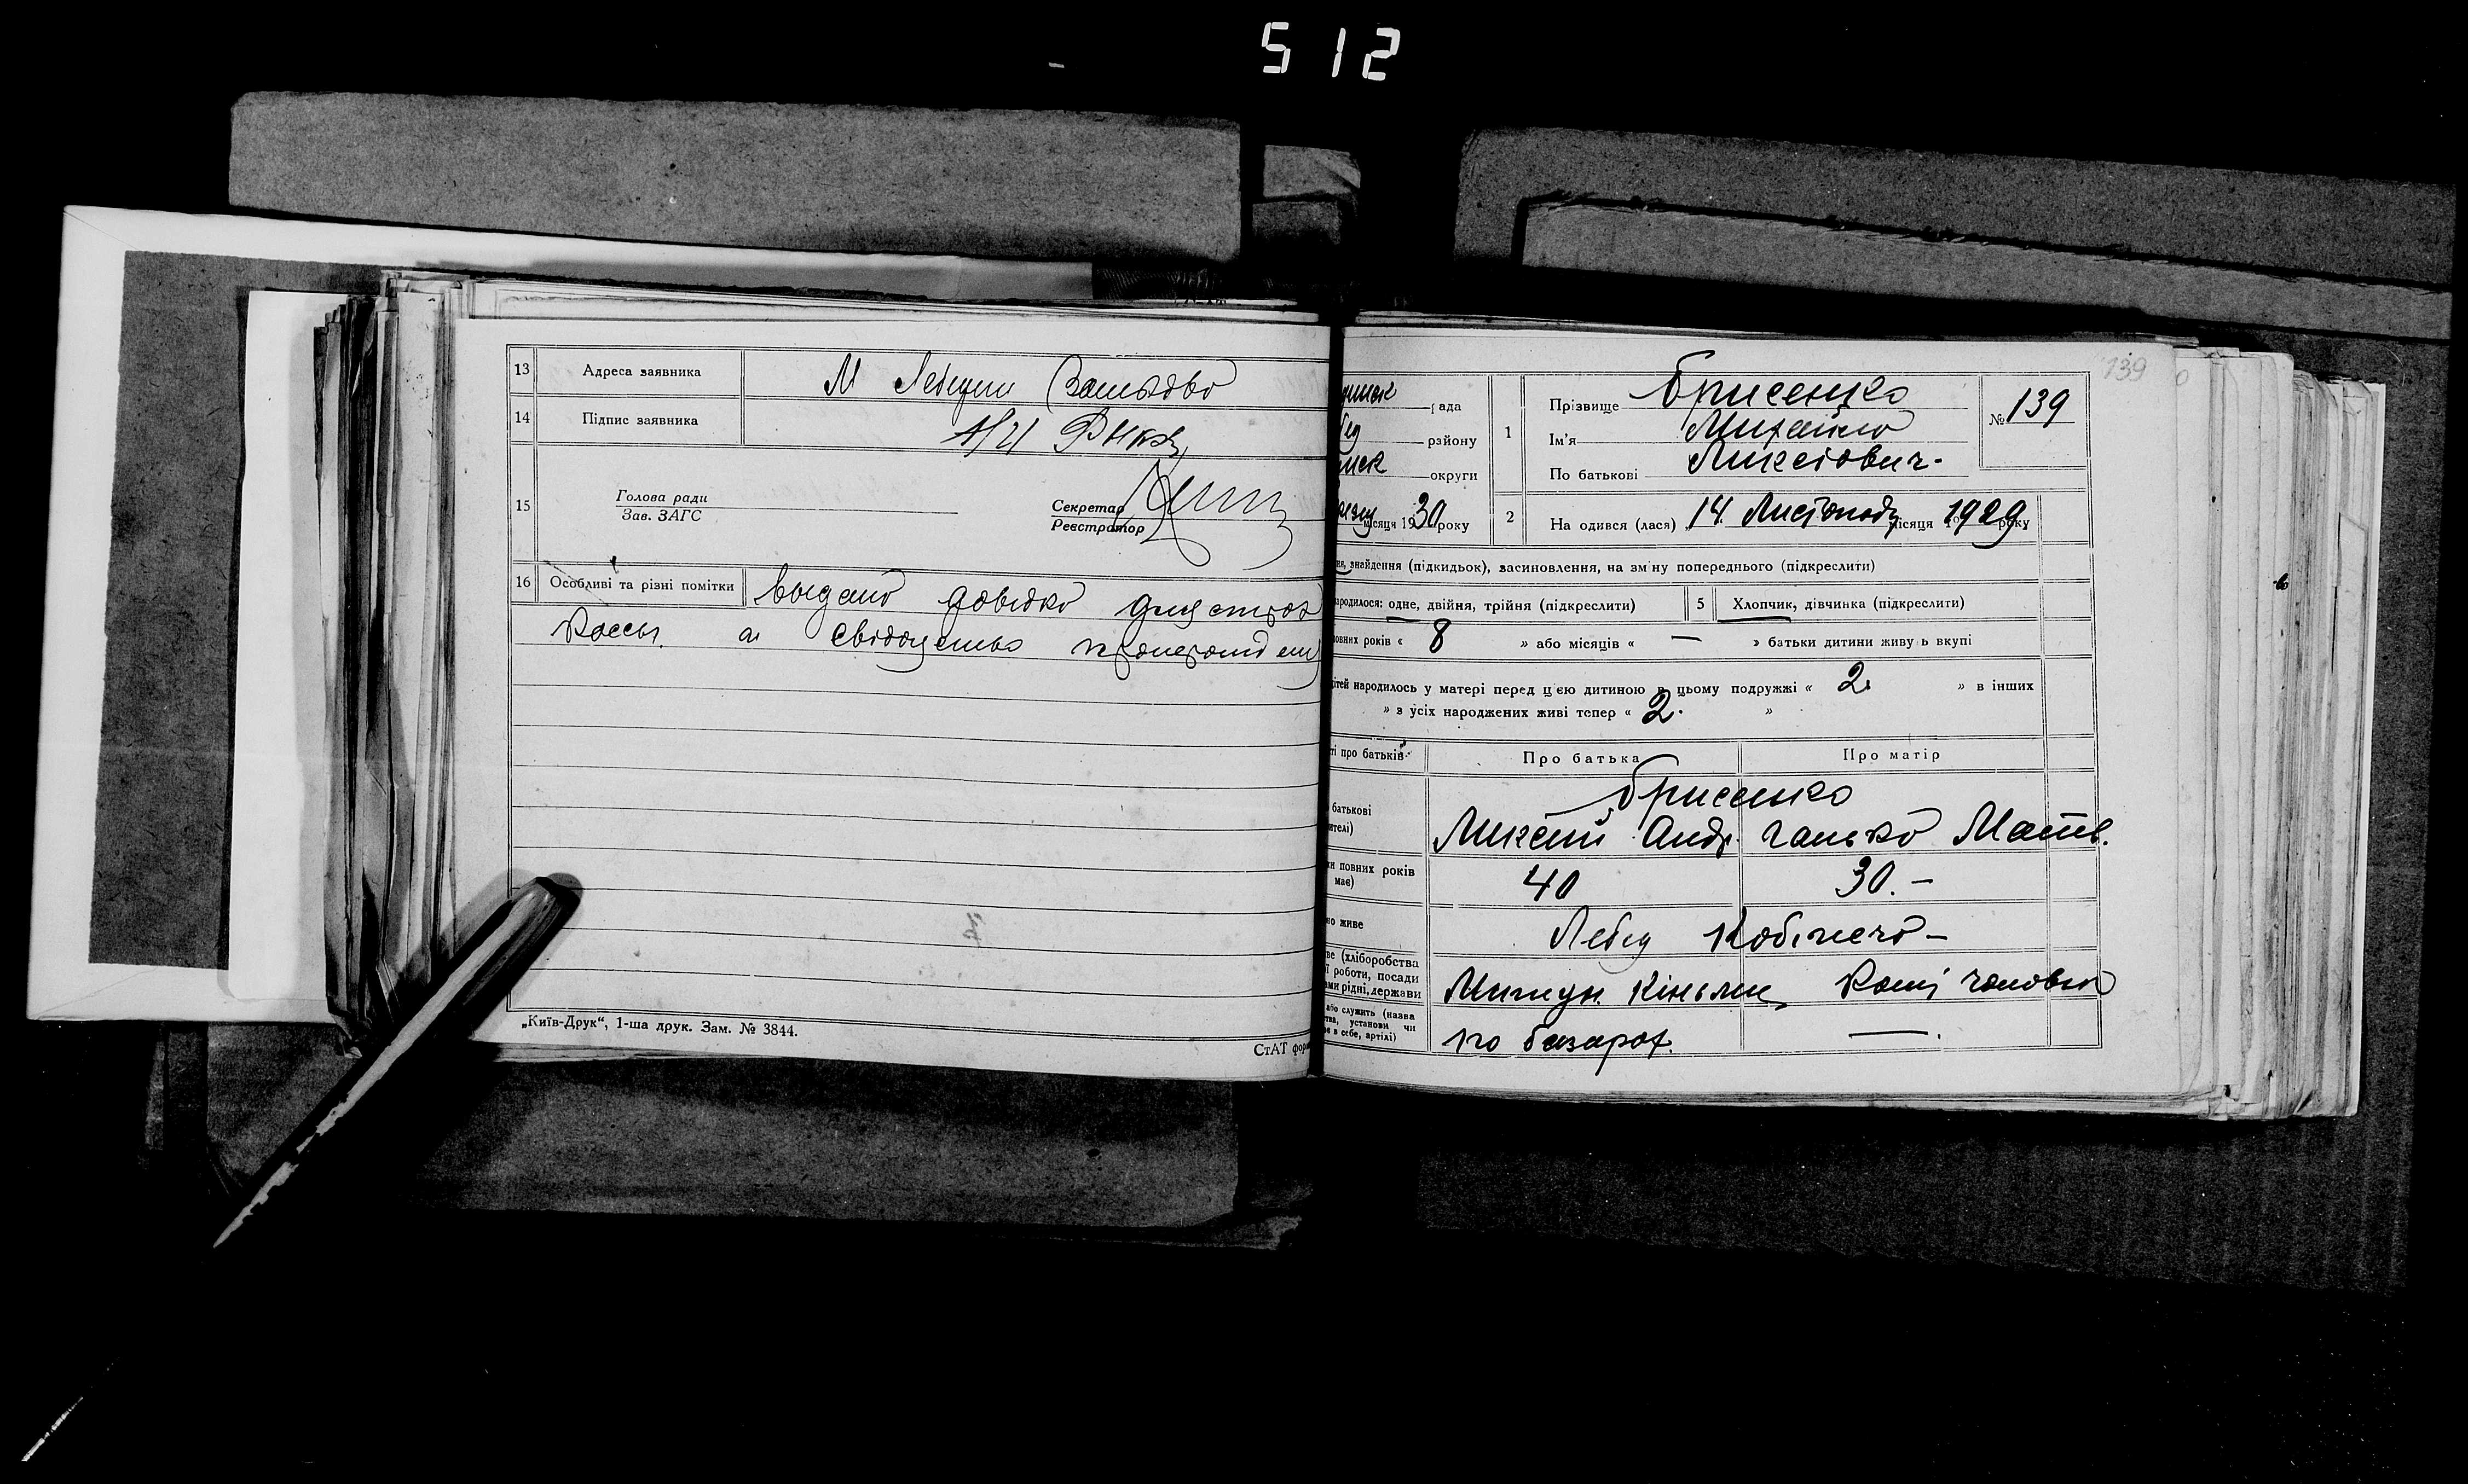 512
13 Адреса заявника М Лебедин
14 Підпис заявника
15 Голова ради
Зав. ЗАГС
Секретар
Реєстратор
16 Особливі та різні помітки видано довідко для страх
Кассы. а свідоцтво
„Київ-Друк“, 1-ша друк. Зам. № 3844.
СтАТ фор
139
рада
району
округи
місяця 1930 року
1 Прізвище Брисенко
Ім'я Михайло
По батькові Ликсіович
№ 139
2 На одився (лася) 14 Листопада місяця 1929 року
ня, знайдення (підкидьок), васиновлення, на зміну попереднього (підкреслити)
народилося: одне, двійня, трійня (підкреслити)
5 Хлопчик, дівчинка (підкреслити)
повних років « 8 » або місяців « — » батьки дитини живуть вкупі
дітей народилось у матері перед цією дитиною в цьому подружжі « 2. » в інших
» з усіх народжених живі тепер « 2. »
ті про батьків
Про батька
Про матір
батькові
ителі)
Брисенко
Ликсій Андр. Ганько Матв.
ки повних років
має)
40
30. —
но живе
Лебед
ве (хліборобства
ї роботи, посади
ами рідні, держави
кіньми
або служить (назва
тва, установи чи
ря в себе, артілі)
по базарах.
—.